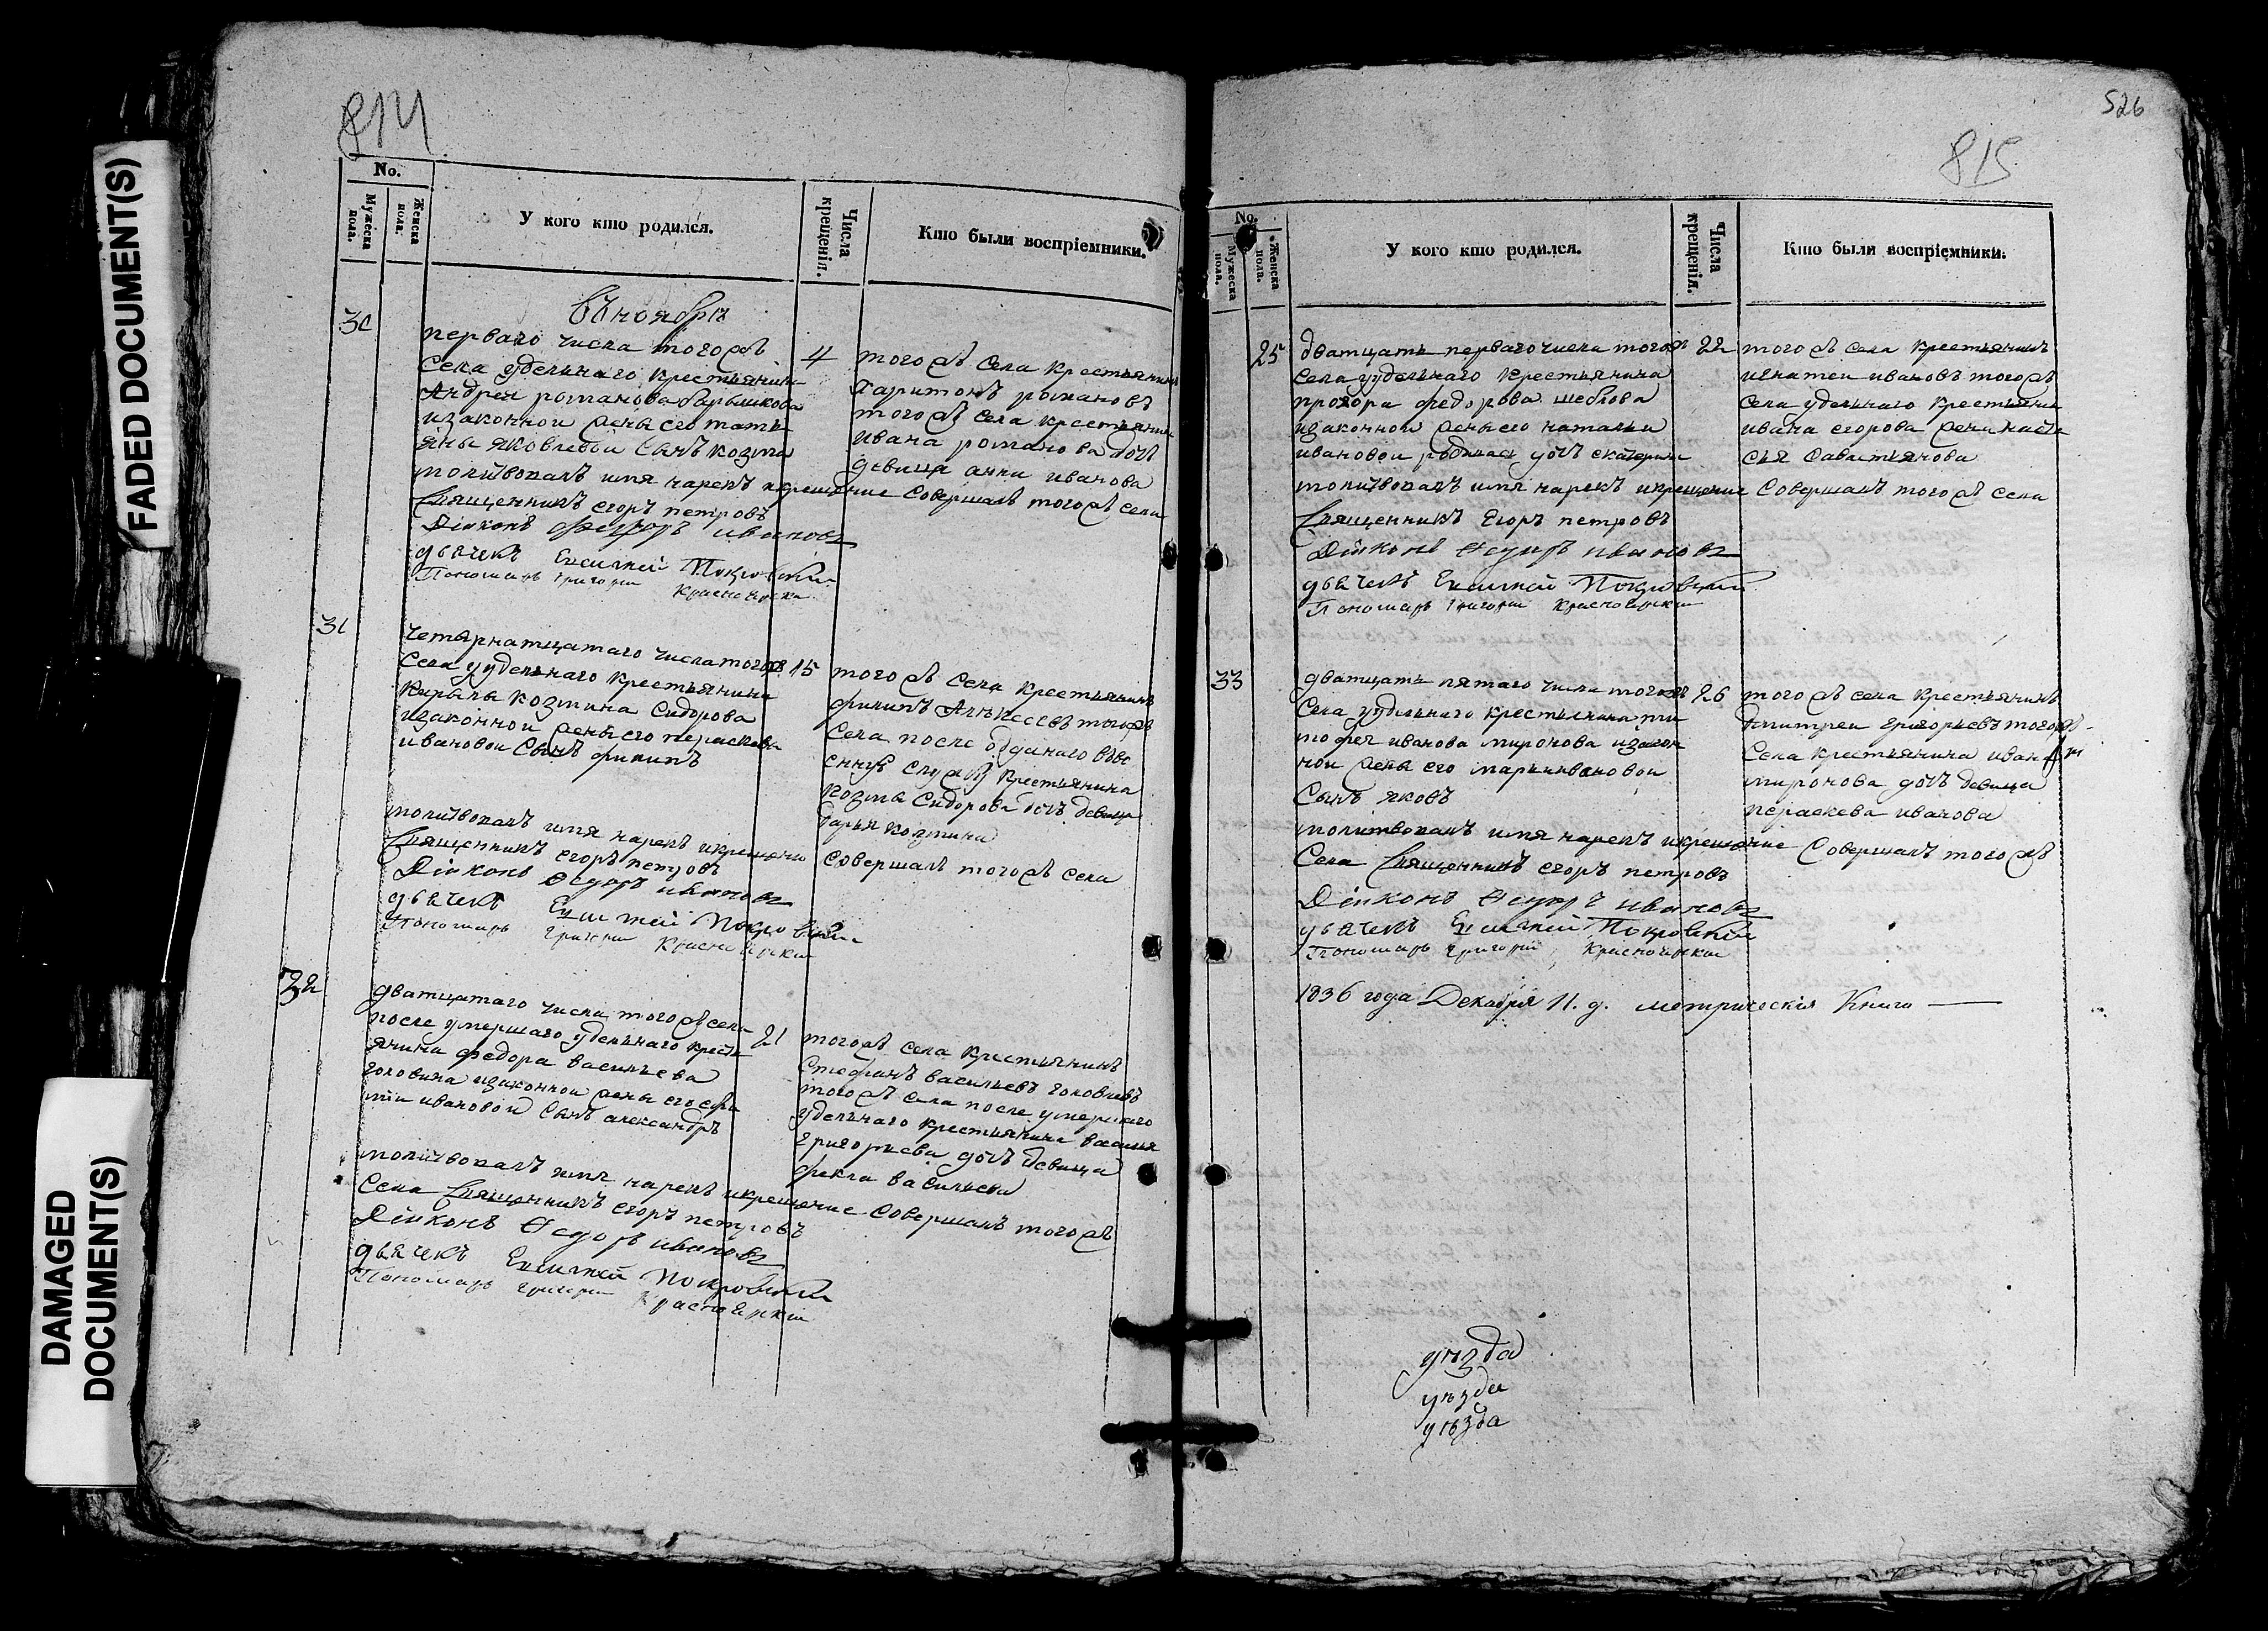 FADED DOCUMENT(S)
DAMAGED
DOCUMENT(S)
814
No.
Мужеска пола.
Женска пола.
У кого кто родился.
Числа крещенія.
Кто были воспріемники.
въ ноябрѣ
30
перваго числа тогожъ
села удельнаго крестьянина
Андрея романова барышкова
изаконной жены его тать
яны яковлевой сынъ козма
4
тогожъ села крестьянинъ
Харитонъ романовъ
тогожъ села крестьянина
ивана романова дочь
девица анна иванова
молитвовалъ имя нарекъ икрещение совершалъ тогожъ села
Священникъ егоръ петровъ
Діяконъ Федоръ ивановъ
дьячекъ Покровский
Пономарь григорий Красноярский
31
четырнатцатаго числа тогожъ
села удельнаго крестьянина
Кирылы козмина Сидорова
изаконной жены его пераскевы
ивановой сынъ филипъ
15
тогожъ села крестьянинъ
филипъ Алексеевъ тогожъ
села после отданаго въво
енную службу крестьянина
козмы Сидорова дочь девица
дарья козмина
молитвовалъ имя нарекъ икрещение
совершалъ тогожъ села
Священникъ егоръ петровъ
Діяконъ Ѳедоръ ивановъ
дьячекъ Покровский
Пономарь григорий Красноярский
32
дватцатаго числа тогожъ села
после умершаго удельнаго кресть
янина федора васильева
головина изаконной жены его
ивановой сынъ александръ
21
тогожъ села крестьянинъ
Стефанъ васильевъ
тогожъ села после умершаго
удельнаго крестьянина василья
григорьева дочь девица
фекла васильева
молитвовалъ имя нарекъ икрещение совершалъ тогожъ
села Священникъ егоръ петровъ
Діяконъ Ѳедоръ ивановъ
дьячекъ Покровский
Пономарь григорий Красноярский
526
815
No.
Мужеска пола.
Женска пола.
У кого кто родился.
Числа крещенія.
Кто были воспріемники.
25
дватцать перваго числа тогожъ
села удельнаго крестьянина
прохора федорова
изаконной жены его натальи
ивановой родилась дочь екатерина
22
тогожъ села крестьянинъ
игнатей ивановъ тогожъ
села удельнаго крестьянина
ивана егорова жена наста
сья савастьянова
молитвовалъ имя нарекъ икрещение совершалъ тогожъ села
Священникъ Егоръ петровъ
Діяконъ Ѳедоръ ивановъ
дьячекъ Покровский
Пономарь григорий Красноярский
33
дватцать пятаго числа тогожъ
села удельнаго крестьянина ти
мофея иванова миронова изакон
ной жены его марьи ивановой
сынъ яковъ
26
тогожъ села крестьянинъ
дмитрей григорьевъ тогожъ
села крестьянина ивана
миронова дочь девица
пераскева иванова
молитвовалъ имя нарекъ икрещение совершалъ тогожъ
села Священникъ егоръ петровъ
Діяконъ Ѳедоръ ивановъ
дьячекъ Покровский
Пономарь григорий Красноярский
1836 года Декабря 11. д. метрическія Книга
уѣзда
уѣзда
уѣзда